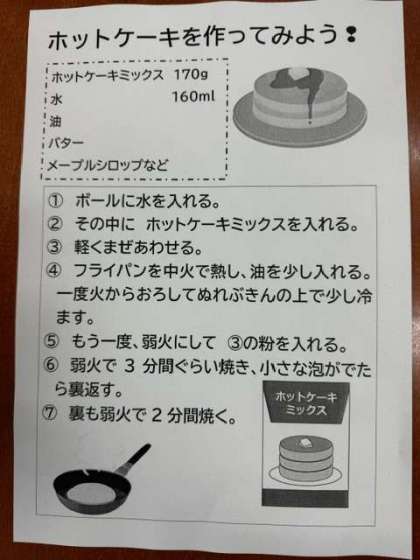 ホットケーキを作ってみよう❢
ホットケーキミックス 170g
水 160ml
油
バター
メープルシロップなど
① ボールに水を入れる。
② その中に ホットケーキミックスを入れる。
③ 軽くまぜあわせる。
④ フライパンを中火で熱し、油を少し入れる。
一度火からおろしてぬれぶきんの上で少し冷
ます。
⑤ もう一度、弱火にして ③の粉を入れる。
⑥ 弱火で 3 分間ぐらい焼き、小さな泡がでた
ら裏返す。
⑦ 裏も弱火で 2 分間焼く。
ホットケーキ
ミックス